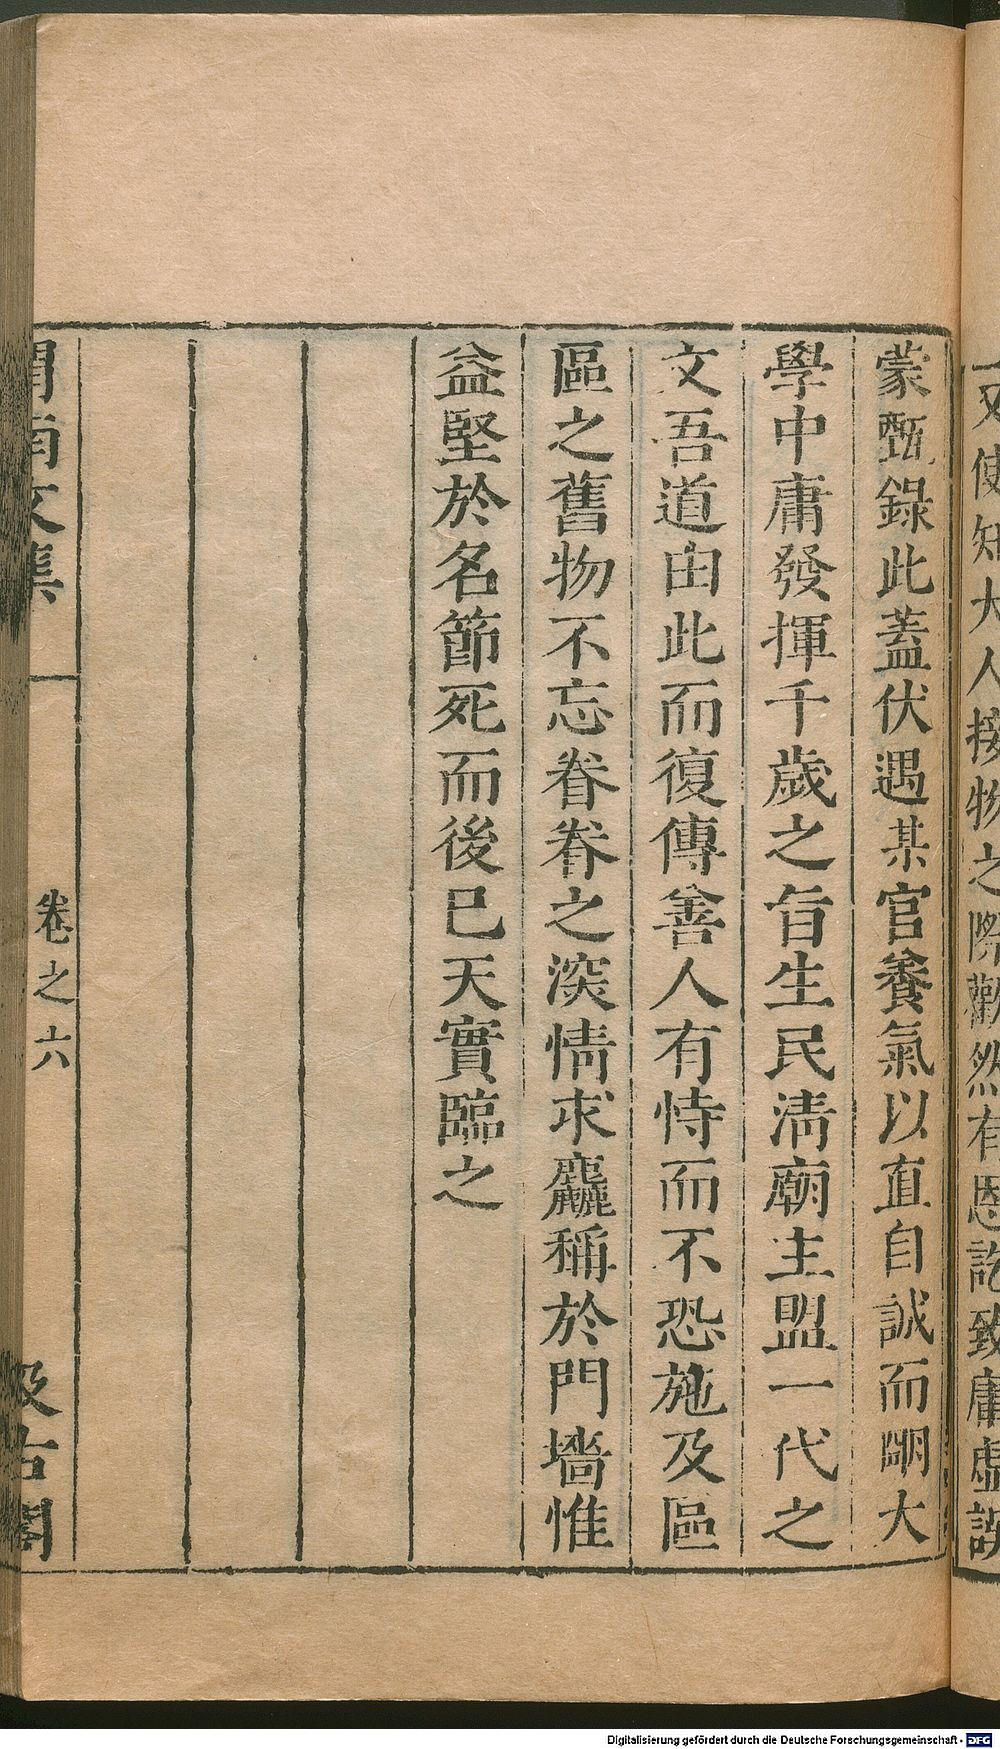 又使知大人接物之際歡然有恩訖致庸虛誤
蒙甄錄此蓋伏遇某官養氣以直自誠而明大
學中庸發揮千歲之旨生民淸廟主盟一代之
文吾道由此而復傳善人有恃而不恐施及區
區之舊物不忘眷眷之深情求麤稱於門墻惟
益堅於名節死而後已天實臨之
渭南文集
卷之六
汲古閣
Digitalisierung gefördert durch die Deutsche Forschungsgemeinschaft - DFG